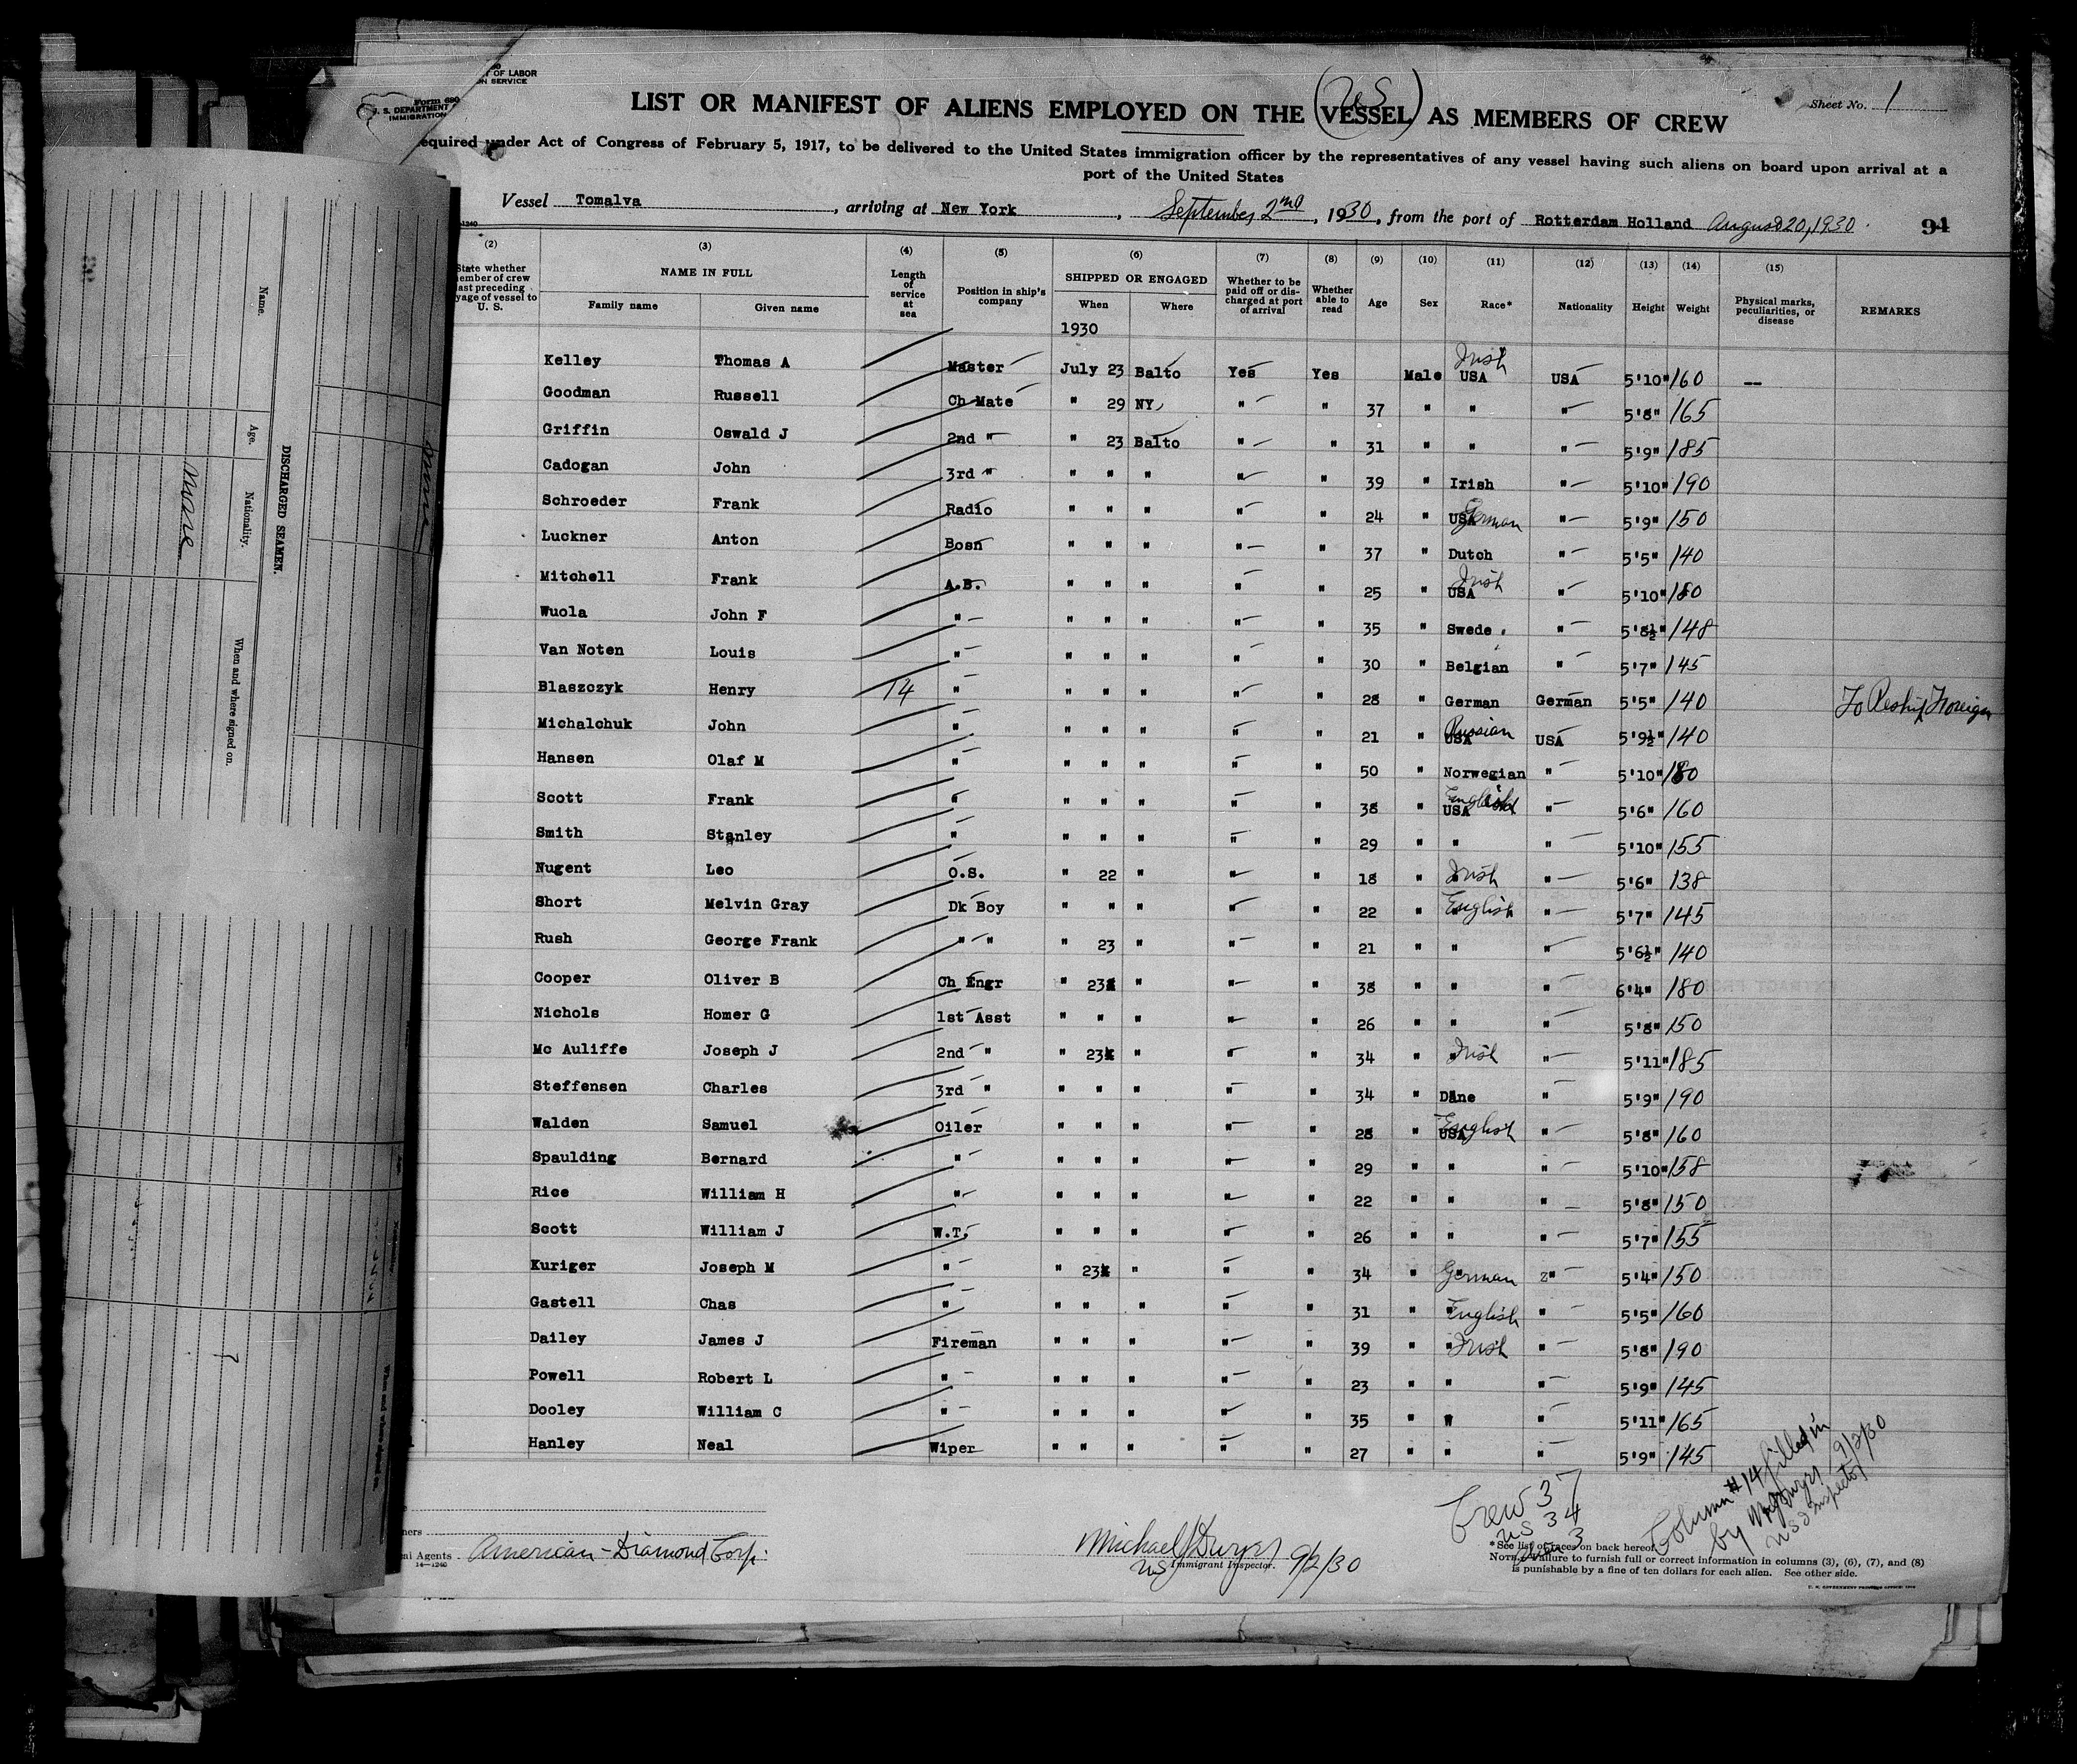 OF LABOR
ON SERVICE
Form 680
U. S. DEPARTMENT
IMMIGRATION
Sheet No. 1
LIST OR MANIFEST OF ALIENS EMPLOYED ON THE VESSEL AS MEMBERS OF CREW
US
equired under Act of Congress of February 5, 1917, to be delivered to the United States immigration officer by the representatives of any vessel having such aliens on board upon arrival at a
port of the United States
Vessel Tomalva, arriving at New York, September 2nd, 1930, from the port of Rotterdam Holland August 20, 1930.
(2) (3) (4) (5) (6) (7) (8) (9) (10) (11) (12) (13) (14) (15)
State whether member of crew last preceding voyage of vessel to U. S. NAME IN FULL Family name Given name Length of service at sea Position in ship's company SHIPPED OR ENGAGED When Where Whether to be paid off or discharged at port of arrival Whether able to read Age Sex Race* Nationality Height Weight Physical marks, peculiarities, or disease REMARKS
1930
Kelley Thomas A Master July 23 Balto Yes Yes Male USA Irish USA 5'10" 160 --
Goodman Russell Ch Mate " 29 NY " " 37 " " " 5'8" 165
Griffin Oswald J 2nd " " 23 Balto " " 31 " " " 5'9" 185
Cadogan John 3rd " " " " " " 39 " Irish " 5'10" 190
Schroeder Frank Radio " " " " " 24 " USA German " 5'9" 150
Luckner Anton Bosn " " " " " 37 " Dutch " 5'5" 140
Mitchell Frank A.B. " " " " " 25 " USA Irish " 5'10" 180
Wuola John F " " " " " " 35 " Swede " 5'8½" 148
Van Noten Louis " " " " " " 30 " Belgian " 5'7" 145
Blaszczyk Henry 14 " " " " " " 28 " German German 5'5" 140 To Reship Foreign
Michalchuk John " " " " " " 21 " USA Russian USA 5'9½" 140
Hansen Olaf M " " " " " " 50 " Norwegian " 5'10" 180
Scott Frank " " " " " " 38 " USA English " 5'6" 160
Smith Stanley " " " " " " 29 " " " 5'10" 155
Nugent Leo O.S. " 22 " " " 18 " Irish " 5'6" 138
Short Melvin Gray Dk Boy " " " " " 22 " English " 5'7" 145
Rush George Frank " " " 23 " " " 21 " " " 5'6½" 140
Cooper Oliver B Ch Engr " 23 " " " 38 " " " 6'4" 180
Nichols Homer G 1st Asst " " " " " 26 " " " 5'8" 150
Mc Auliffe Joseph J 2nd " " 23 " " " 34 " Irish " 5'11" 185
Steffensen Charles 3rd " " " " " " 34 " Dane " 5'9" 190
Walden Samuel Oiler " " " " " 28 " USA English " 5'8" 160
Spaulding Bernard " " " " " " 29 " " " 5'10" 158
Rice William H " " " " " " 22 " " " 5'8" 150
Scott William J W.T. " " " " " 26 " " " 5'7" 155
Kuriger Joseph M " " 23 " " " 34 " German " 5'4" 150
Gastell Chas " " " " " " 31 " English " 5'5" 160
Dailey James J Fireman " " " " " 39 " Irish " 5'8" 190
Powell Robert L " " " " " " 23 " " " 5'9" 145
Dooley William C " " " " " " 35 " " " 5'11" 165
Hanley Neal Wiper " " " " " 27 " " " 5'9" 145
Crew 37
US 34
Alien 3
Column #14 filled in
by 9/2/30
US Inspector
Agents American-Diamond Corp.
14-1240
Michael Dwyer 9/2/30
US Immigrant Inspector.
*See list of races on back hereof.
NOTE.—Failure to furnish full or correct information in columns (3), (6), (7), and (8)
is punishable by a fine of ten dollars for each alien. See other side.
DISCHARGED SEAMEN.
Name. Age. Nationality. When and where signed on.